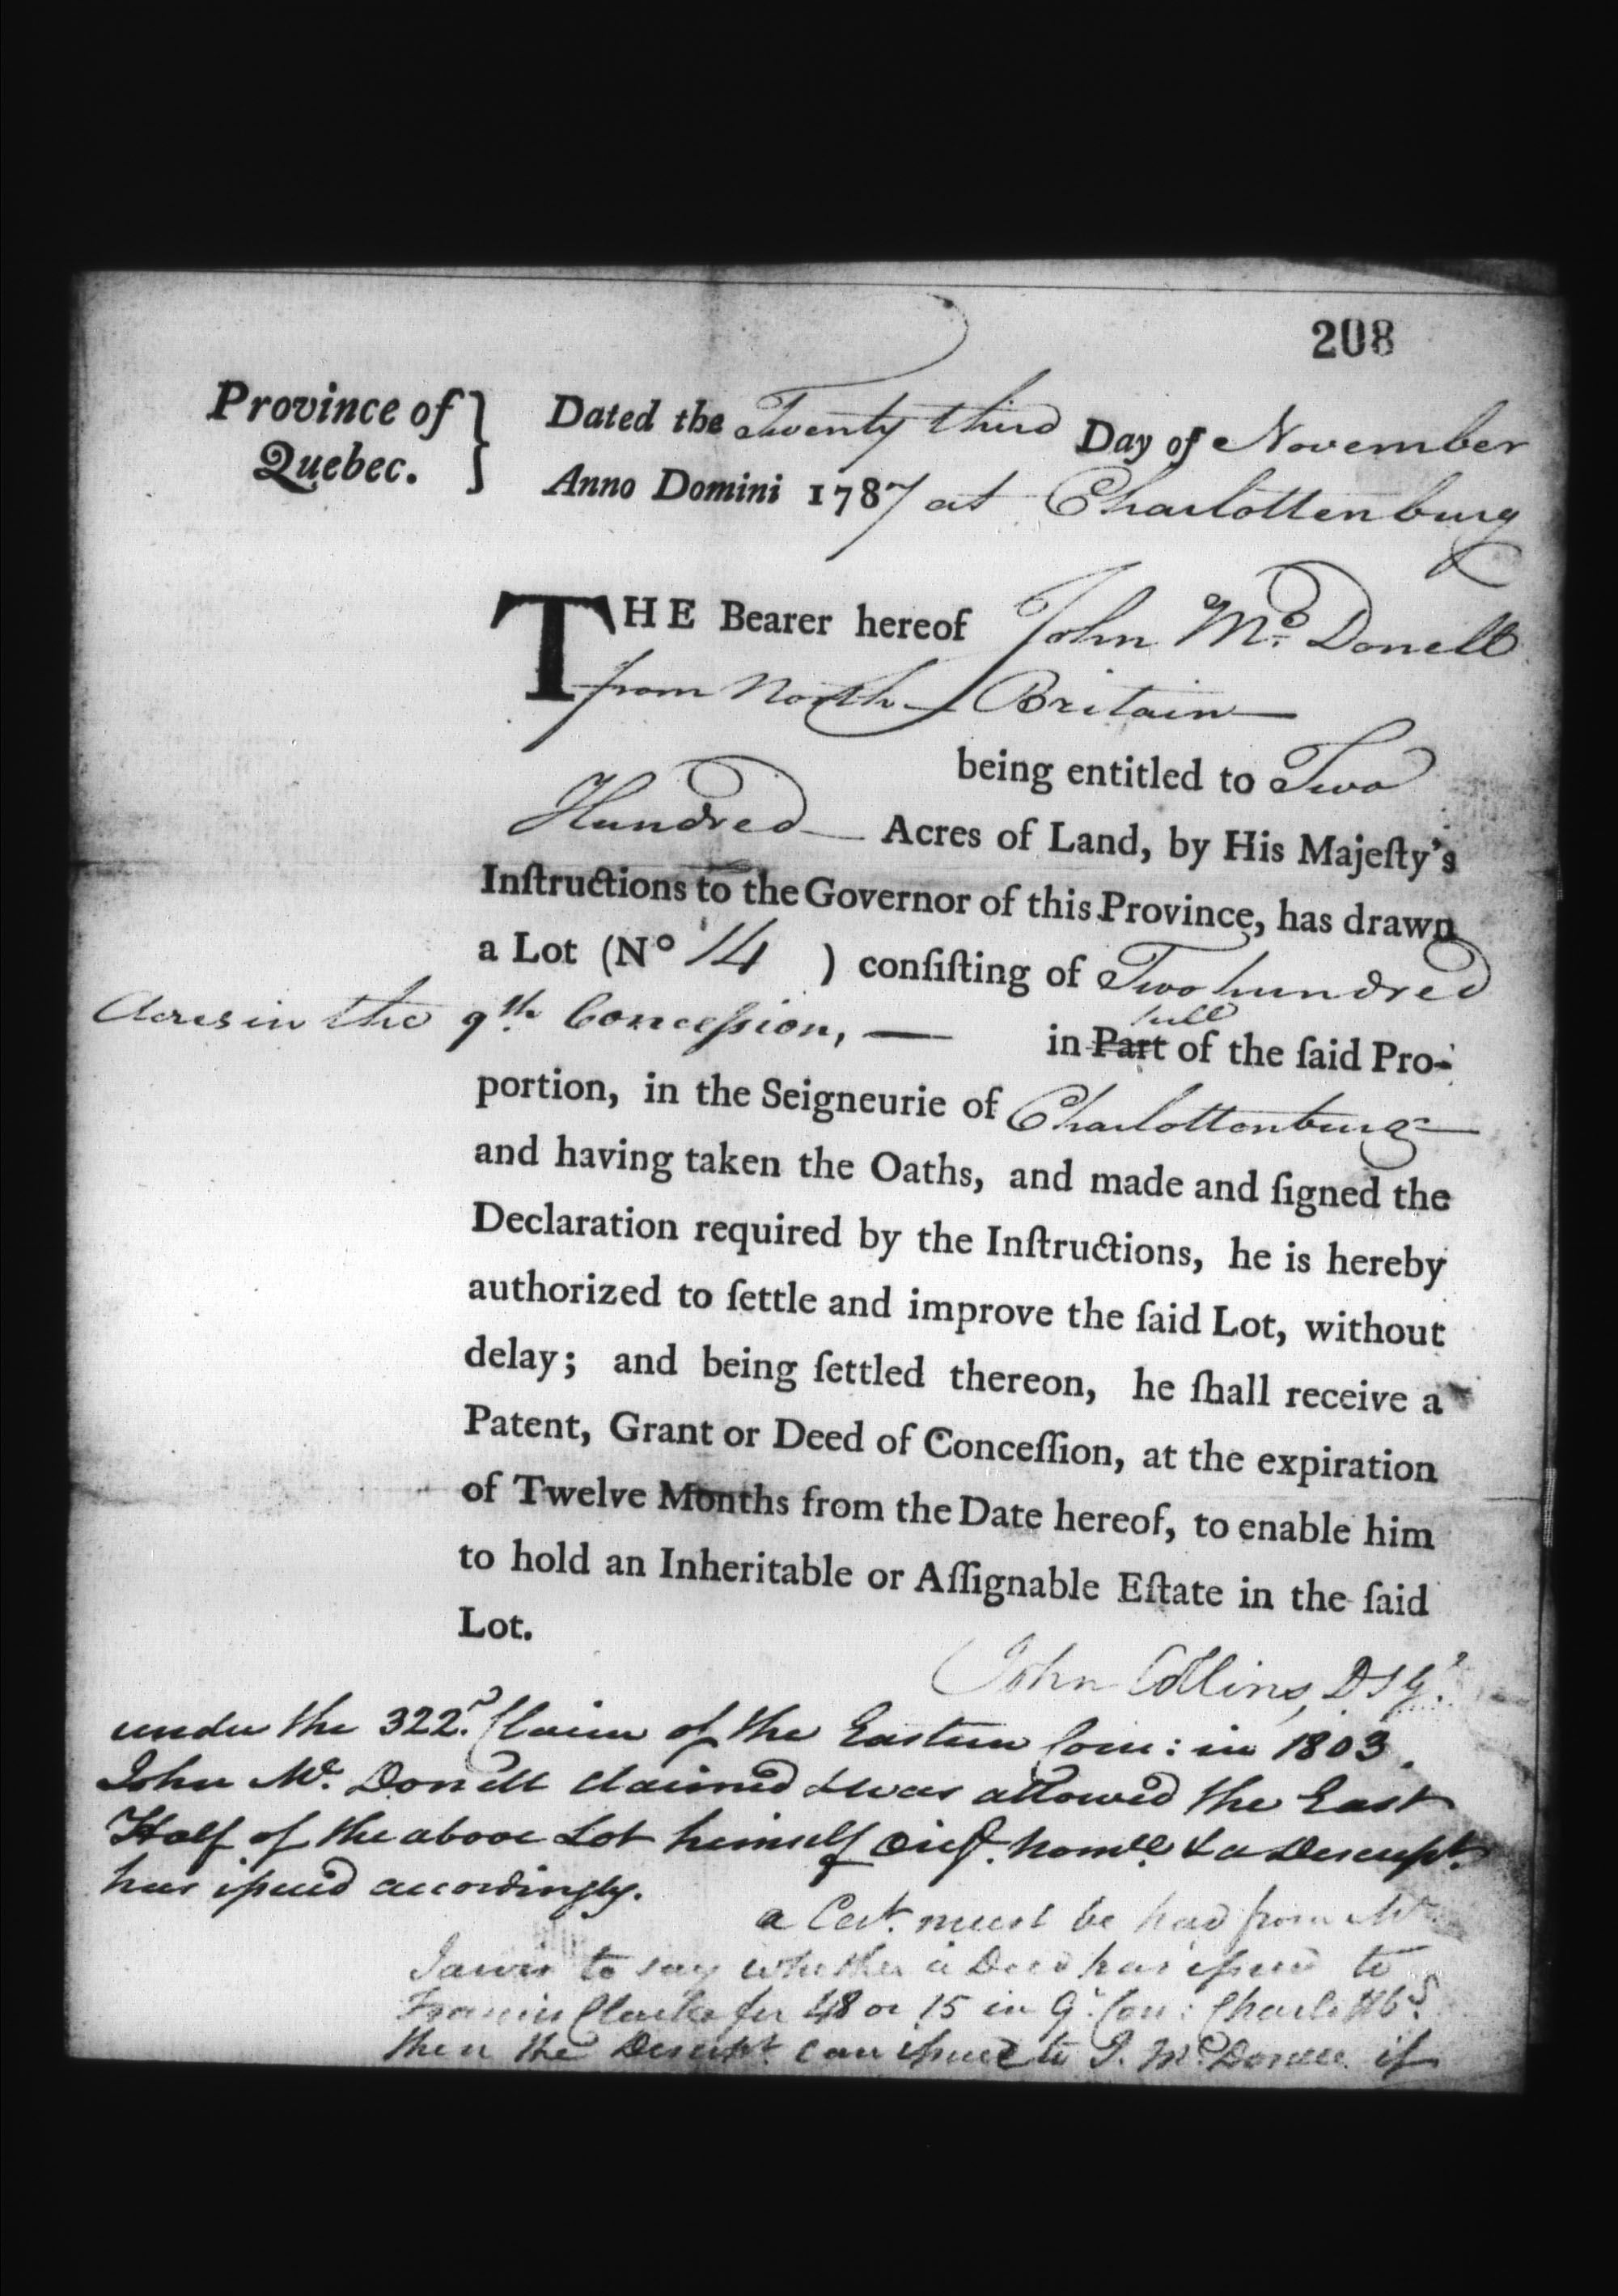 208
Province of Quebec. } Dated the Twenty third Day of November
Anno Domini 1787 at Charlottenburg
THE Bearer hereof John Mc. Donell
from North Britain
being entitled to Two
Hundred Acres of Land, by His Majeſty's
Inſtructions to the Governor of this Province, has drawn
a Lot (No 14 ) conſiſting of Two hundred
Acres in the 9th. Conceſsion, — full
in Part of the ſaid Pro-
portion, in the Seigneurie of Charlottenburg
and having taken the Oaths, and made and ſigned the
Declaration required by the Inſtructions, he is hereby
authorized to ſettle and improve the ſaid Lot, without
delay; and being ſettled thereon, he ſhall receive a
Patent, Grant or Deed of Conceſſion, at the expiration
of Twelve Months from the Date hereof, to enable him
to hold an Inheritable or Aſſignable Eſtate in the ſaid
Lot.
John Collins, D S G.
under the 322d. Claim of the Eastern Com: in 1803.
John Mc. Donell claimed & was allowed the East
Half of the above Lot himself Orig. Nomee. & a Descript.
has iſsued accordingly.
a Cert. must be had from Mr.
Jarvis to say whether a Deed has iſsued to
Francis Clarke for 48 or 15 in 9. Con: Charlottbg.
then the Descript. can iſsue to J. McDonell if